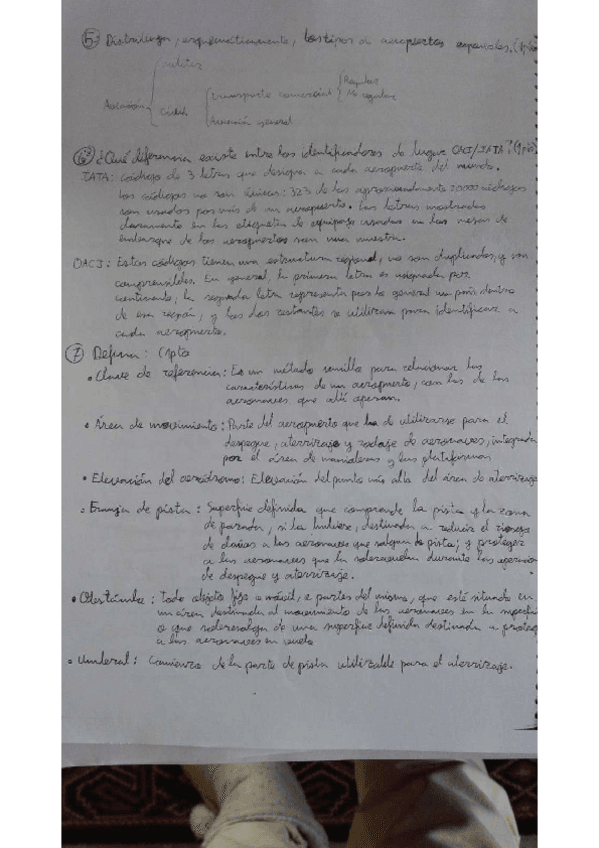 5 Distribuya, esquemáticamente, los tipos de aeropuertos españoles. (1pto)
Militar
Aviación
Civil
transporte comercial
Regular
No regular
Aviación general
6 ¿Qué diferencia existe entre los identificadores de lugar OACI/IATA? (1pto)
IATA: códigos de 3 letras que designan a cada aeropuerto del mundo.
Los códigos no son únicos: 323 de los aproximadamente 20000 códigos
son usados por más de un aeropuerto. Las letras mostradas
claramente en las etiquetas de equipaje usadas en las mesas de
embarque de los aeropuertos son una muestra.
OACI: Estos códigos tienen una estructura regional, no son duplicados, y son
comprensibles. En general, la primera letra es asignada por
continente, la segunda letra representa por lo general un país dentro
de esa región, y las dos restantes se utilizan para identificar a
cada aeropuerto.
7 Defina: (1pto
• Clave de referencia: Es un método sencillo para relacionar las
características de un aeropuerto, con las de las
aeronaves que allí operan.
• Área de movimiento: Parte del aeropuerto que ha de utilizarse para el
despegue, aterrizaje y rodaje de aeronaves, integrada
por el área de maniobras y las plataformas
• Elevación del aeródromo: Elevación del punto más alto del área de aterrizaje
• Franja de pista: Superficie definida que comprende la pista y la zona
de parada, si la hubiese, destinada a reducir el riesgo
de daños a las aeronaves que salgan de pista; y proteger
a las aeronaves que la sobrevuelan durante las operacio
de despegue y aterrizaje.
• Obstáculo: Todo objeto fijo o móvil, o partes del mismo, que esté situado en
un área destinada al movimiento de las aeronaves en la superfici
o que sobresalga de una superficie definida destinada a proteg
a las aeronaves en vuelo
• Umbral: Comienzo de la parte de pista utilizable para el aterrizaje.